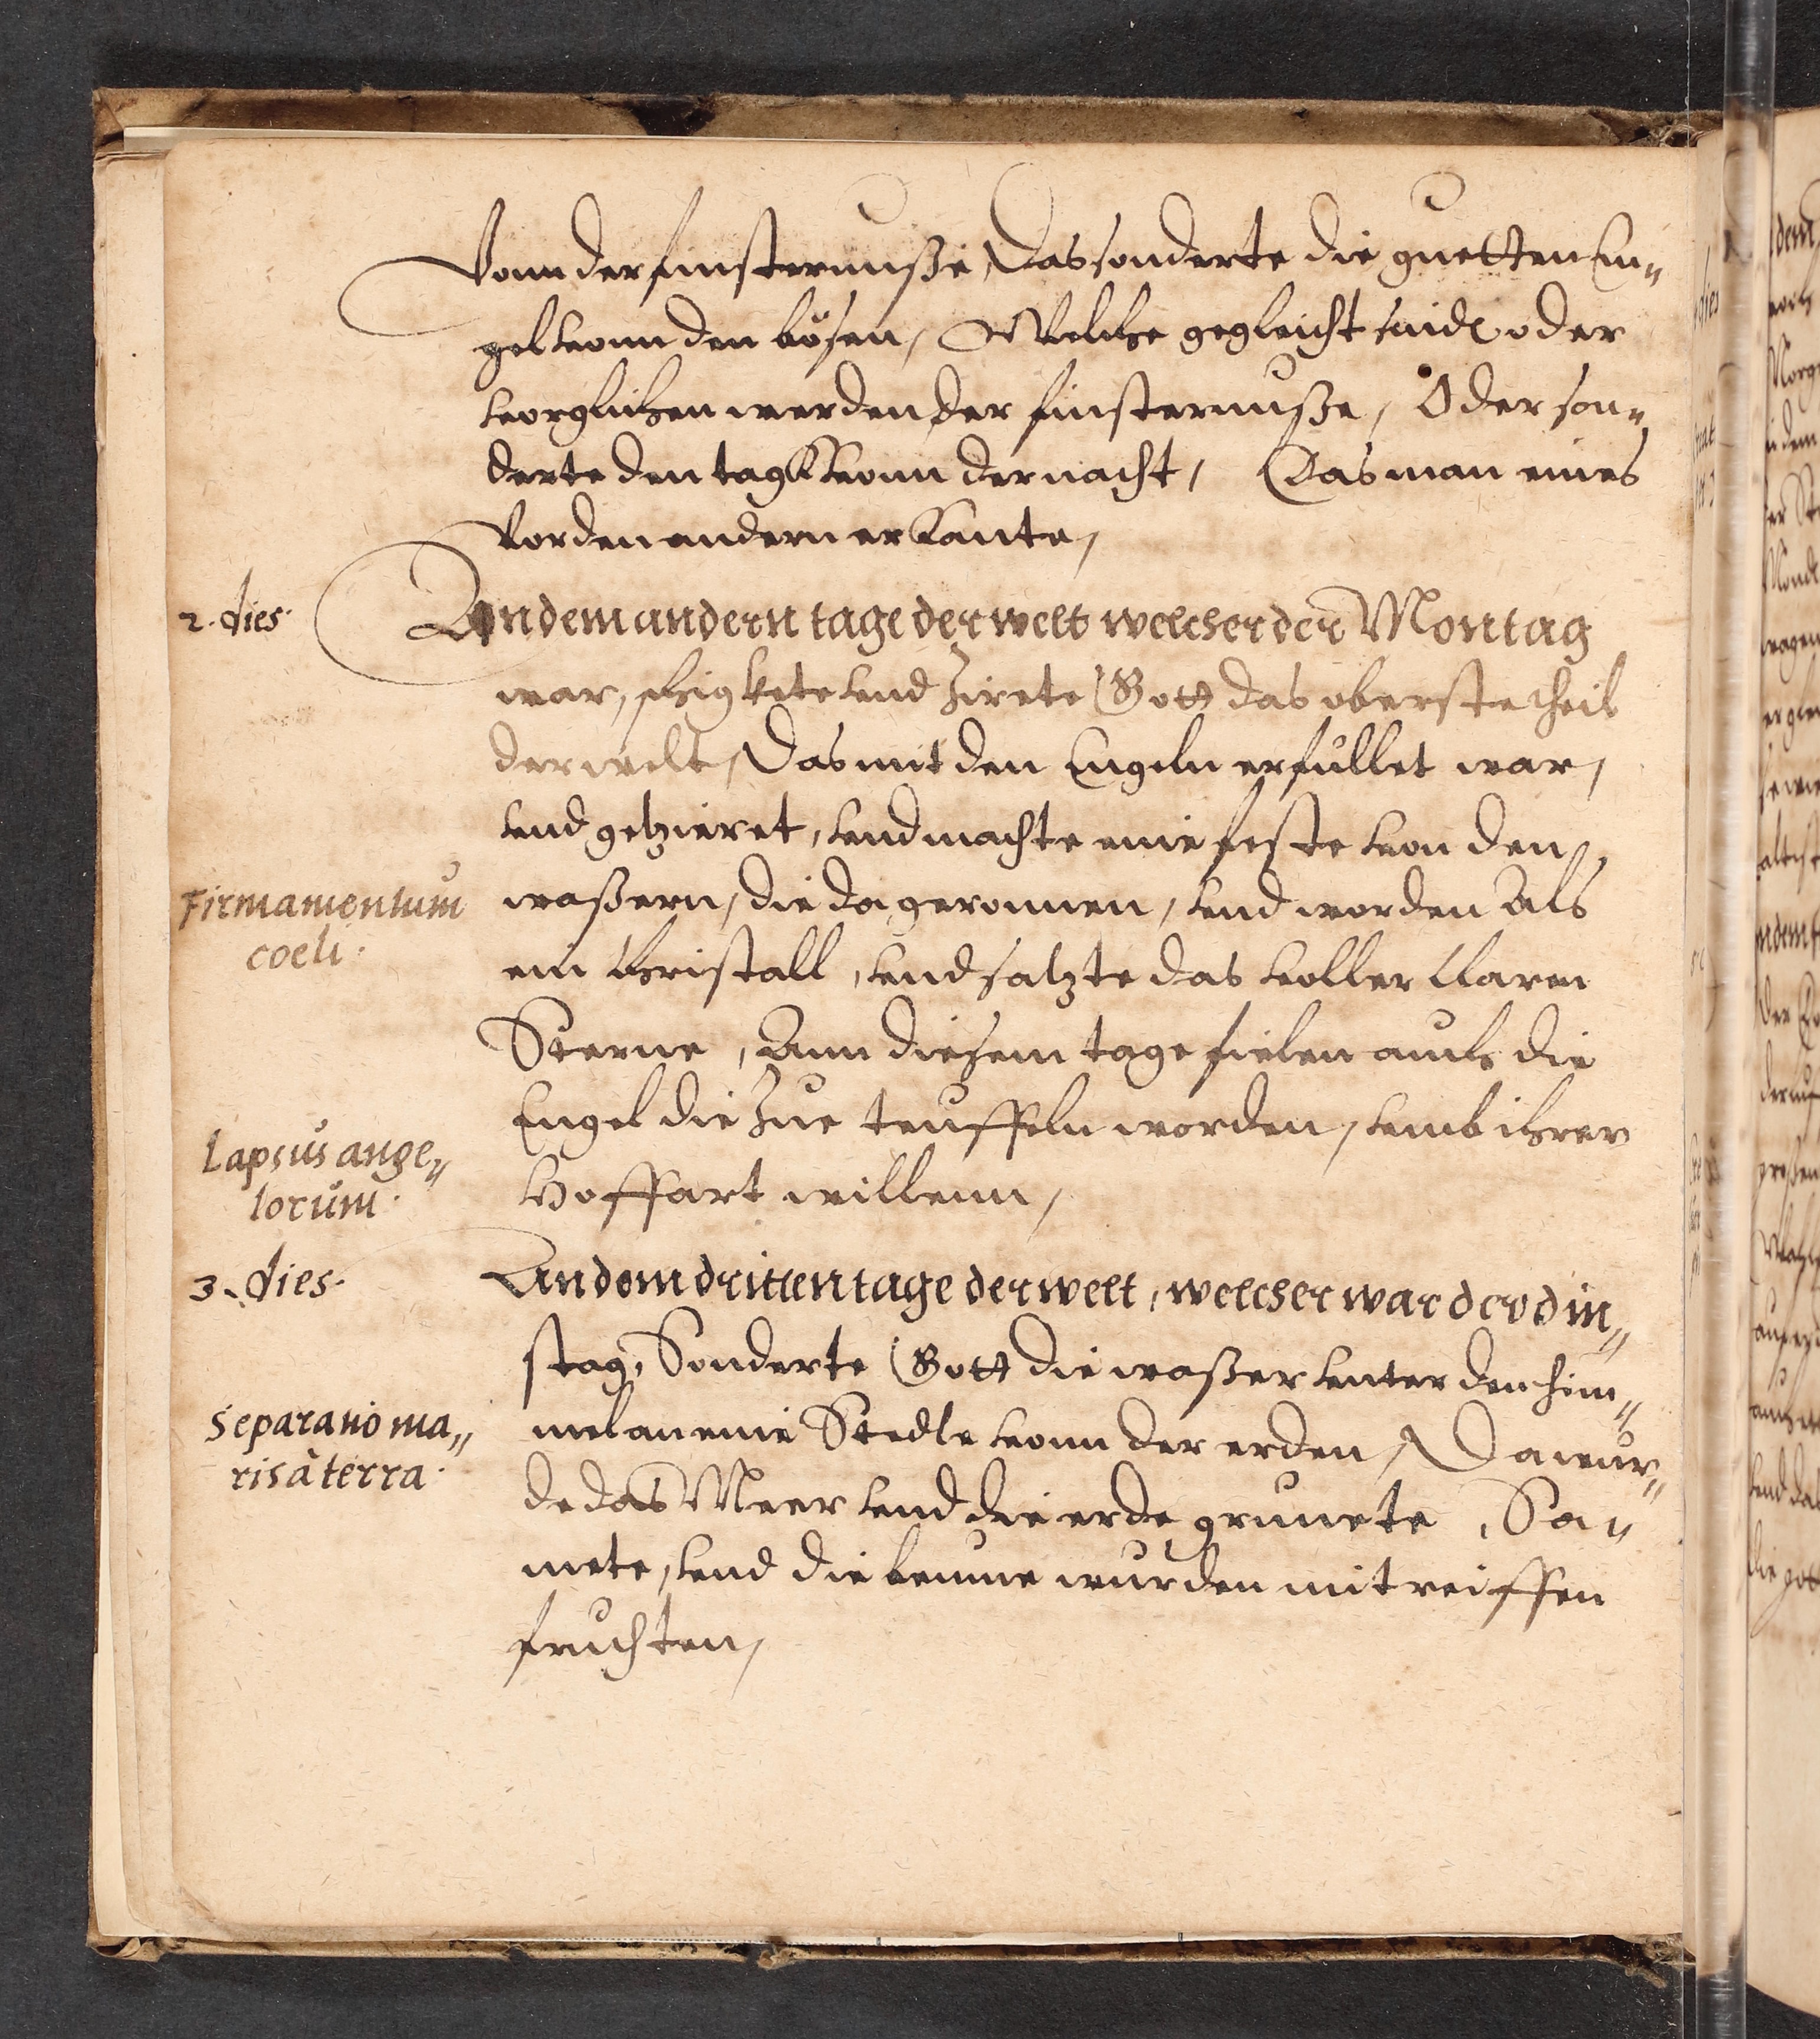 Vonn der finsternuße, Das sonderte die guetten En„
gel vonn den bösen, Welche gegleicht sind oder
vorglichen werden der finsternuße, Oder son„
derte den tagk vonn der nacht, Das man eines
vor den andern erkante,
2. dies.
An dem andern tage der welt welcher der Montag
war, schigkete vnd zirete Gott das oberste theil
der welt, Das mit den Engeln erfüllet war,
vnd getzieret, vnd machte eine feste von den
Firmamentum
coeli.
waßern, die da geronnen, vnd worden Als
ein Christall, vnd satzte das voller klaren
Sterne, Ann diesem tage fielen auch die
Engel die zue teuffeln worden, vmb ihrer
Lapsus ange„
lorum.
Hoffart willenn,
3. dies.
An dem dritten tage der welt, welcher war der din„
stag, Sonderte Gott die waßer vnter den him„
Separatio ma„
ris à terra.
mel an eine Stedle vonn der erden, Da wur„
de das Meer vnd die erde grunete, Sa„
mete, vnd die beume wurden mit reiffen
fruchten,